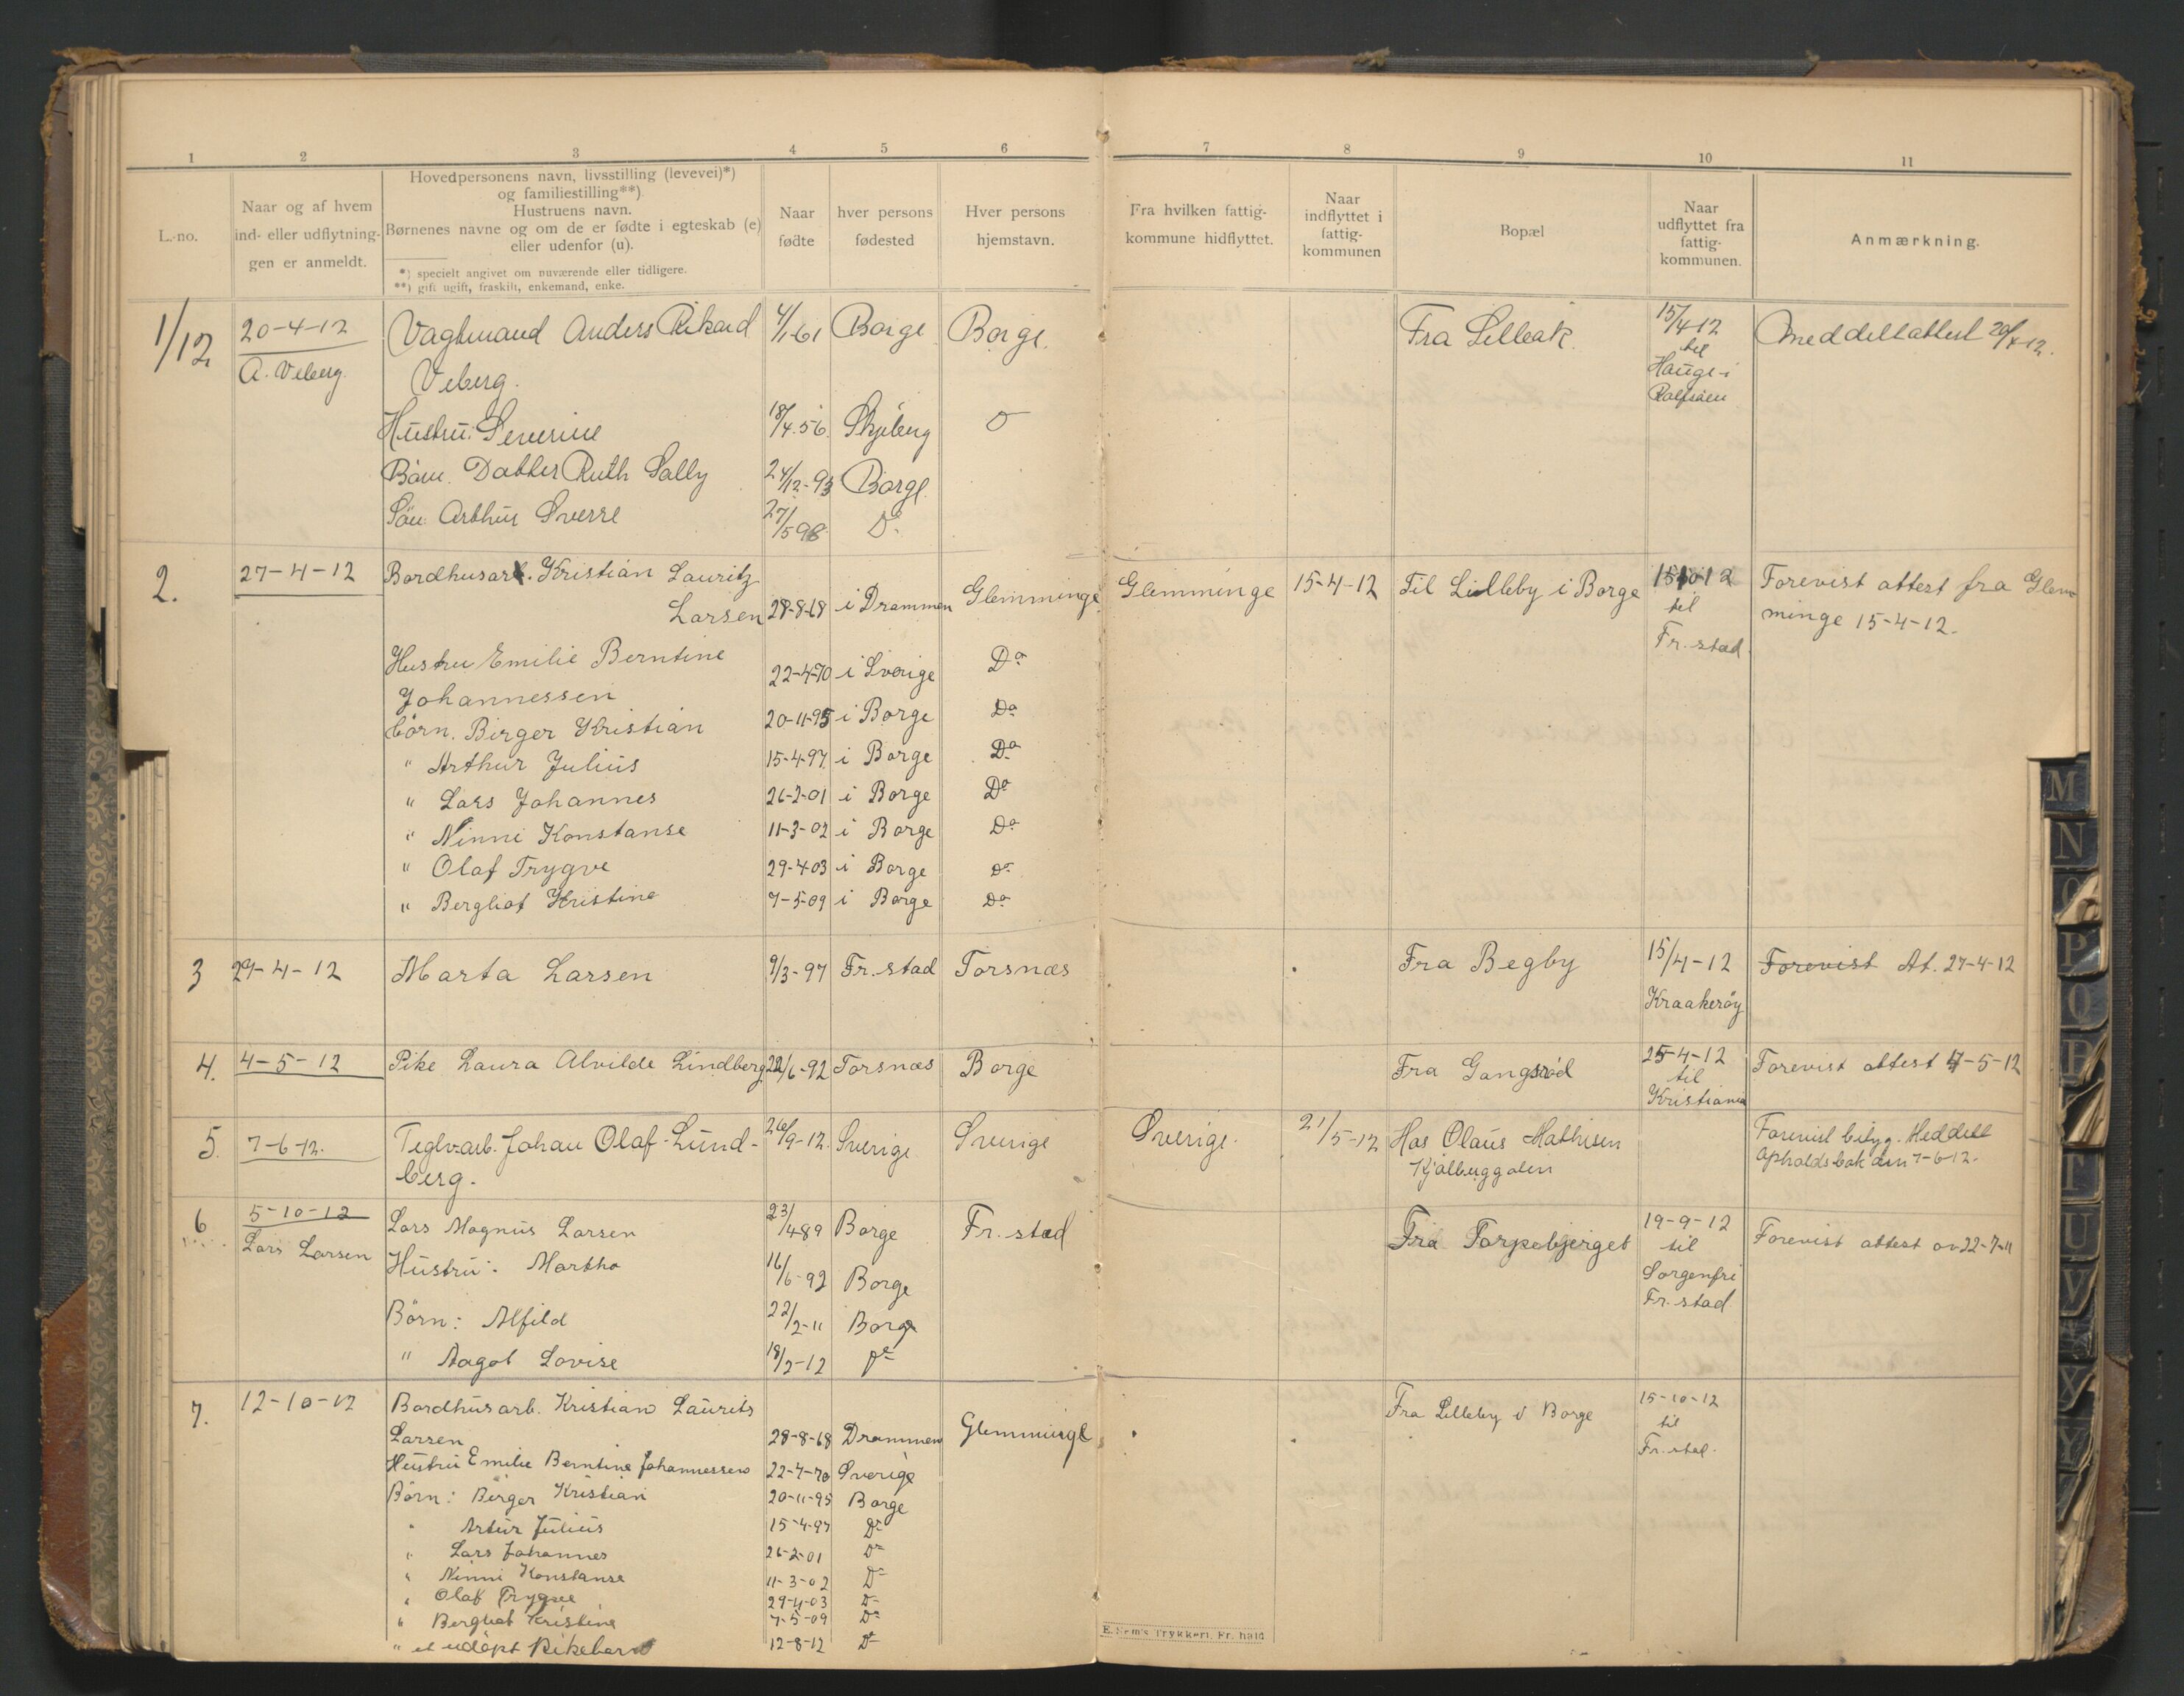 1 2 3 4 5 6 7 8 9 10 11
L.-no.
Naar og af hvem
ind- eller udflytnin-
gen er anmeldt.
Hovedpersonens navn, livsstilling (levevei)*)
og familiestilling**)
Hustruens navn.
Børnenes navne og om de er fødte i egteskab (e)
eller udenfor (u).
*) specielt angivet om nuværende eller tidligere.
**) gift ugift, fraskilt, enkemand, enke.
Naar
fødte
hver persons
fødested
Hver persons
hjemstavn.
Fra hvilken fattig-
kommune hidflyttet.
Naar
indflyttet i
fattig-
kommunen
Bopæl
Naar
udflyttet fra
fattig-
kommunen.
Anmærkning.
1/12 20-4-12 Vagtmand Anders Rikard 4/1-61 Borge Borge. Fra Lilleak. 15/4-12 Meddelt attest 20/4-12.
A. Veberg. Veberg. til
Hauge i
Rolfsøen
Hustru: Severine 18/4.56. Skjeberg D
Børn. Datter Ruth Sally 24/12-93 Borge.
Søn: Arthur Sverre 27/5 98. Do
2. 27-4-12 Bordhusarb. Kristian Lauritz
Larsen 28-8-68 i Drammen Glemminge Glemminge 15-4-12 Til Lilleby i Borge 15-10-12 Forevist attest fra Glem
til minge 15-4-12.
Fr. stad.
Hustru Emilie Berntine
Johannessen 22-4-70 i Sverige Do
børn. Birger Kristian 20-11-95 i Borge Do
" Arthur Julius 15-4-97 i Borge Do
" Lars Johannes 26-2-01 i Borge Do
" Ninni Konstanse 11-3-02 i Borge Do
" Olaf Trygve 29-4 03 i Borge Do
" Bergliot Kristine 7-5-09 i Borge Do
3 29-4-12 Marta Larsen 9/3-97 Fr. stad Torsnæs Fra Begby 15/4-12 Forevist At. 27-4-12
Kraakerøy
4. 4-5-12 Pike Laura Alvilde Lindberg 22/6-92 Torsnæs Borge Fra Gangsrød 25-4-12 Forevist attest 4-5-12
til
Kristiania
5. 7-6-12. Teglv.arb. Johan Olaf Lund- 26/9-12. Sverige Sverige Sverige. 21/5-12 Hos Olaus Mathisen Forevist betyg. Meddelt
berg. Kjølberggalen Opholdsbok den 7-6-12.
6 5-10-12 Lars Magnus Larsen 23/4 89 Borge Fr. stad Fra Torpebjerget 19-9-12 Forevist attest av 22-7-11
Lars Larsen til
Sorgenfri
Fr. stad
Hustru: Martha 16/6-92 Borge
Børn: Alfild 22/2-11 Borge
" Aagot Lovise 18/2-12 Do
7. 12-10-12 Bordhusarb. Kristian Laurits
Larsen 28-8-68 Drammen Glemminge Fra Lilleby i Borge 15-10-12
til
Fr. stad.
Hustru Emilie Berntine Johannessen 22-4-70 Sverige
Børn: Birger Kristian 20-11-95 Borge
" Artur Julius 15-4-97 Do
" Lars Johannes 26-2-01 Do
" Ninni Konstanse 11-3-02 Do
" Olaf Trygve 29-4-03 Do
" Bergliot Kristine 7-5-09 Do
" et udøpt Pikebarn 12-8-12 Do
E. Sem's Trykkeri, Fr. hald
M
N
O
P
Q
R
T
U
V
X
Y